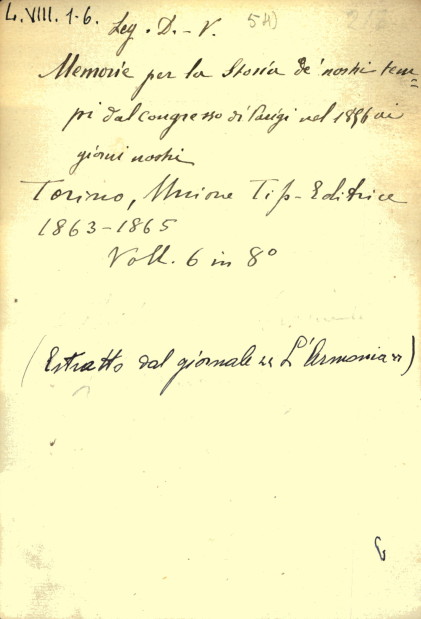 L. VIII. 1-6.
Leg. D.-V. 54)
Memorie per la Storia de' nostri tem=
pi dal congresso di Parigi nel 1856 ai
giorni nostri
Torino, Unione Tip-Editrice
1863-1865
Voll. 6 in 8º
(Estratto dal giornale "L'Armonia")